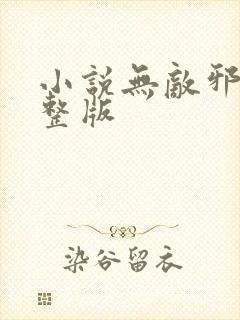 小説無敵邪
整版
染谷留衣